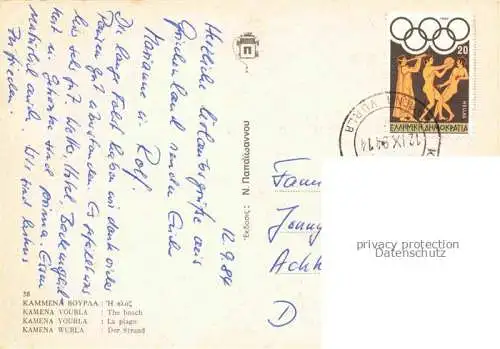 12.9.84
Herzliche Urlaubsgrüße aus
Griechenland senden Euch
Marianne u. Rolf.
Die lange Fahrt haben wir dank vieler
Pausen gut überstanden. Es gefällt uns
hier sehr gut. Wetter, Hotel, Bademöglich-
keit u. Getränke sind prima. Essen
natürlich auch. Wir sind bestens
zufrieden.
38
ΚΑΜΜΕΝΑ ΒΟΥΡΛΑ : Ἡ πλάζ
KAMENA VOURLA : The beach
KAMENA VOURLA : La plage
KAMENA WURLA : Der Strand
Ἔκδοσις: Ν. Παπαϊωάννου
Π
20
HELLAS
ΕΛΛΗΝΙΚΗ ΔΗΜΟΚΡΑΤΙΑ
VURLA
12.IX.84 14
Fam
D
privacy protection
Datenschutz